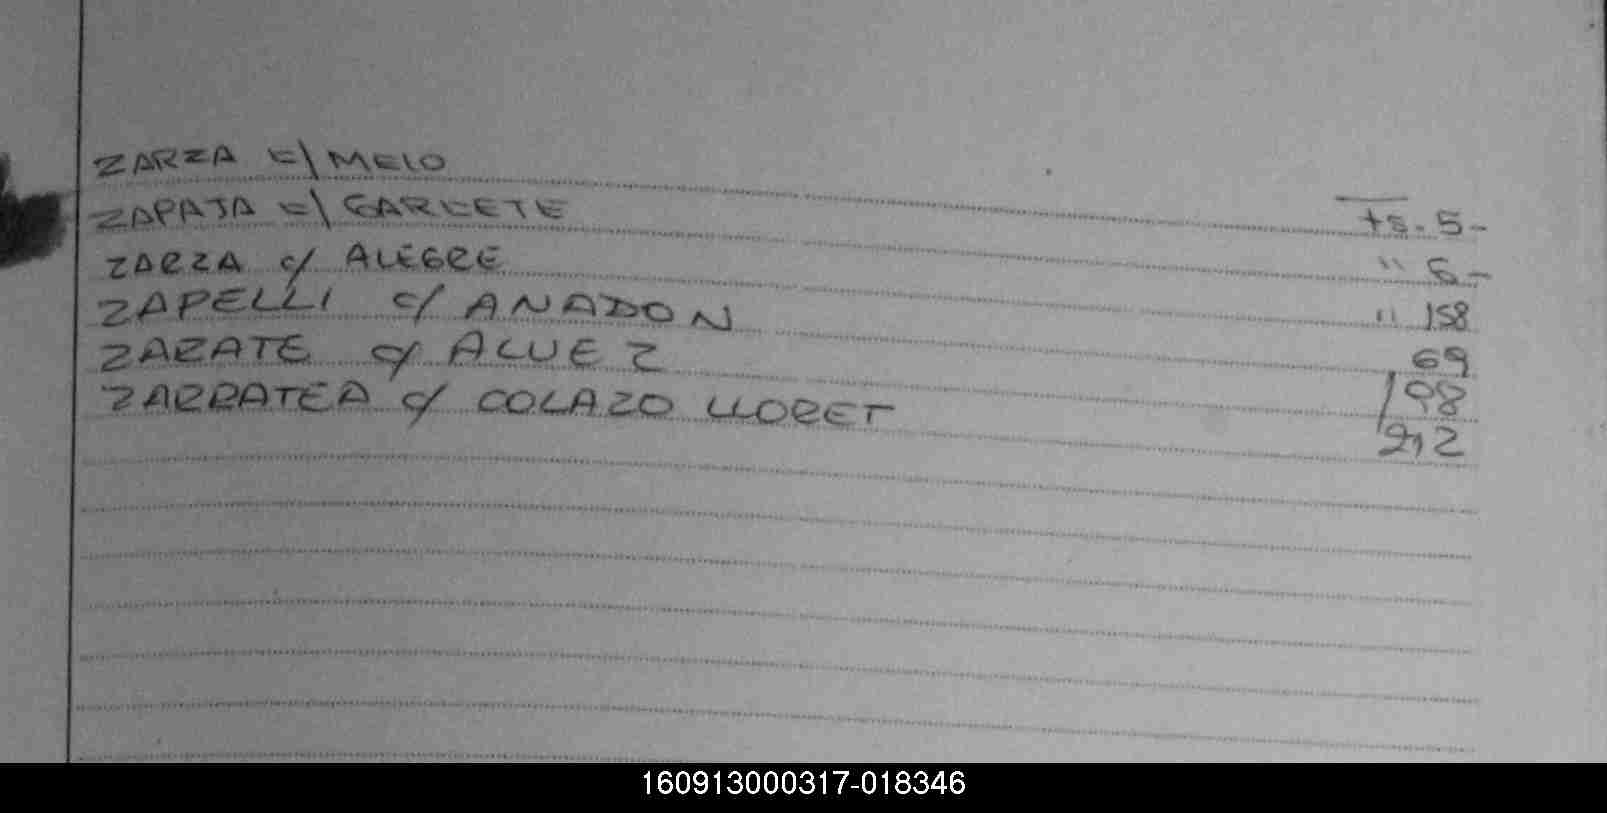 ZARZA c/ MELO ts. 5-
ZAPATA c/ GARCETE " 6-
ZARZA c/ ALEGRE " 158
ZAPELLI c/ ANADON 69
ZARATE c/ ALVEZ 198
ZARRATEA c/ COLAZO LLORET 212
160913000317-018346